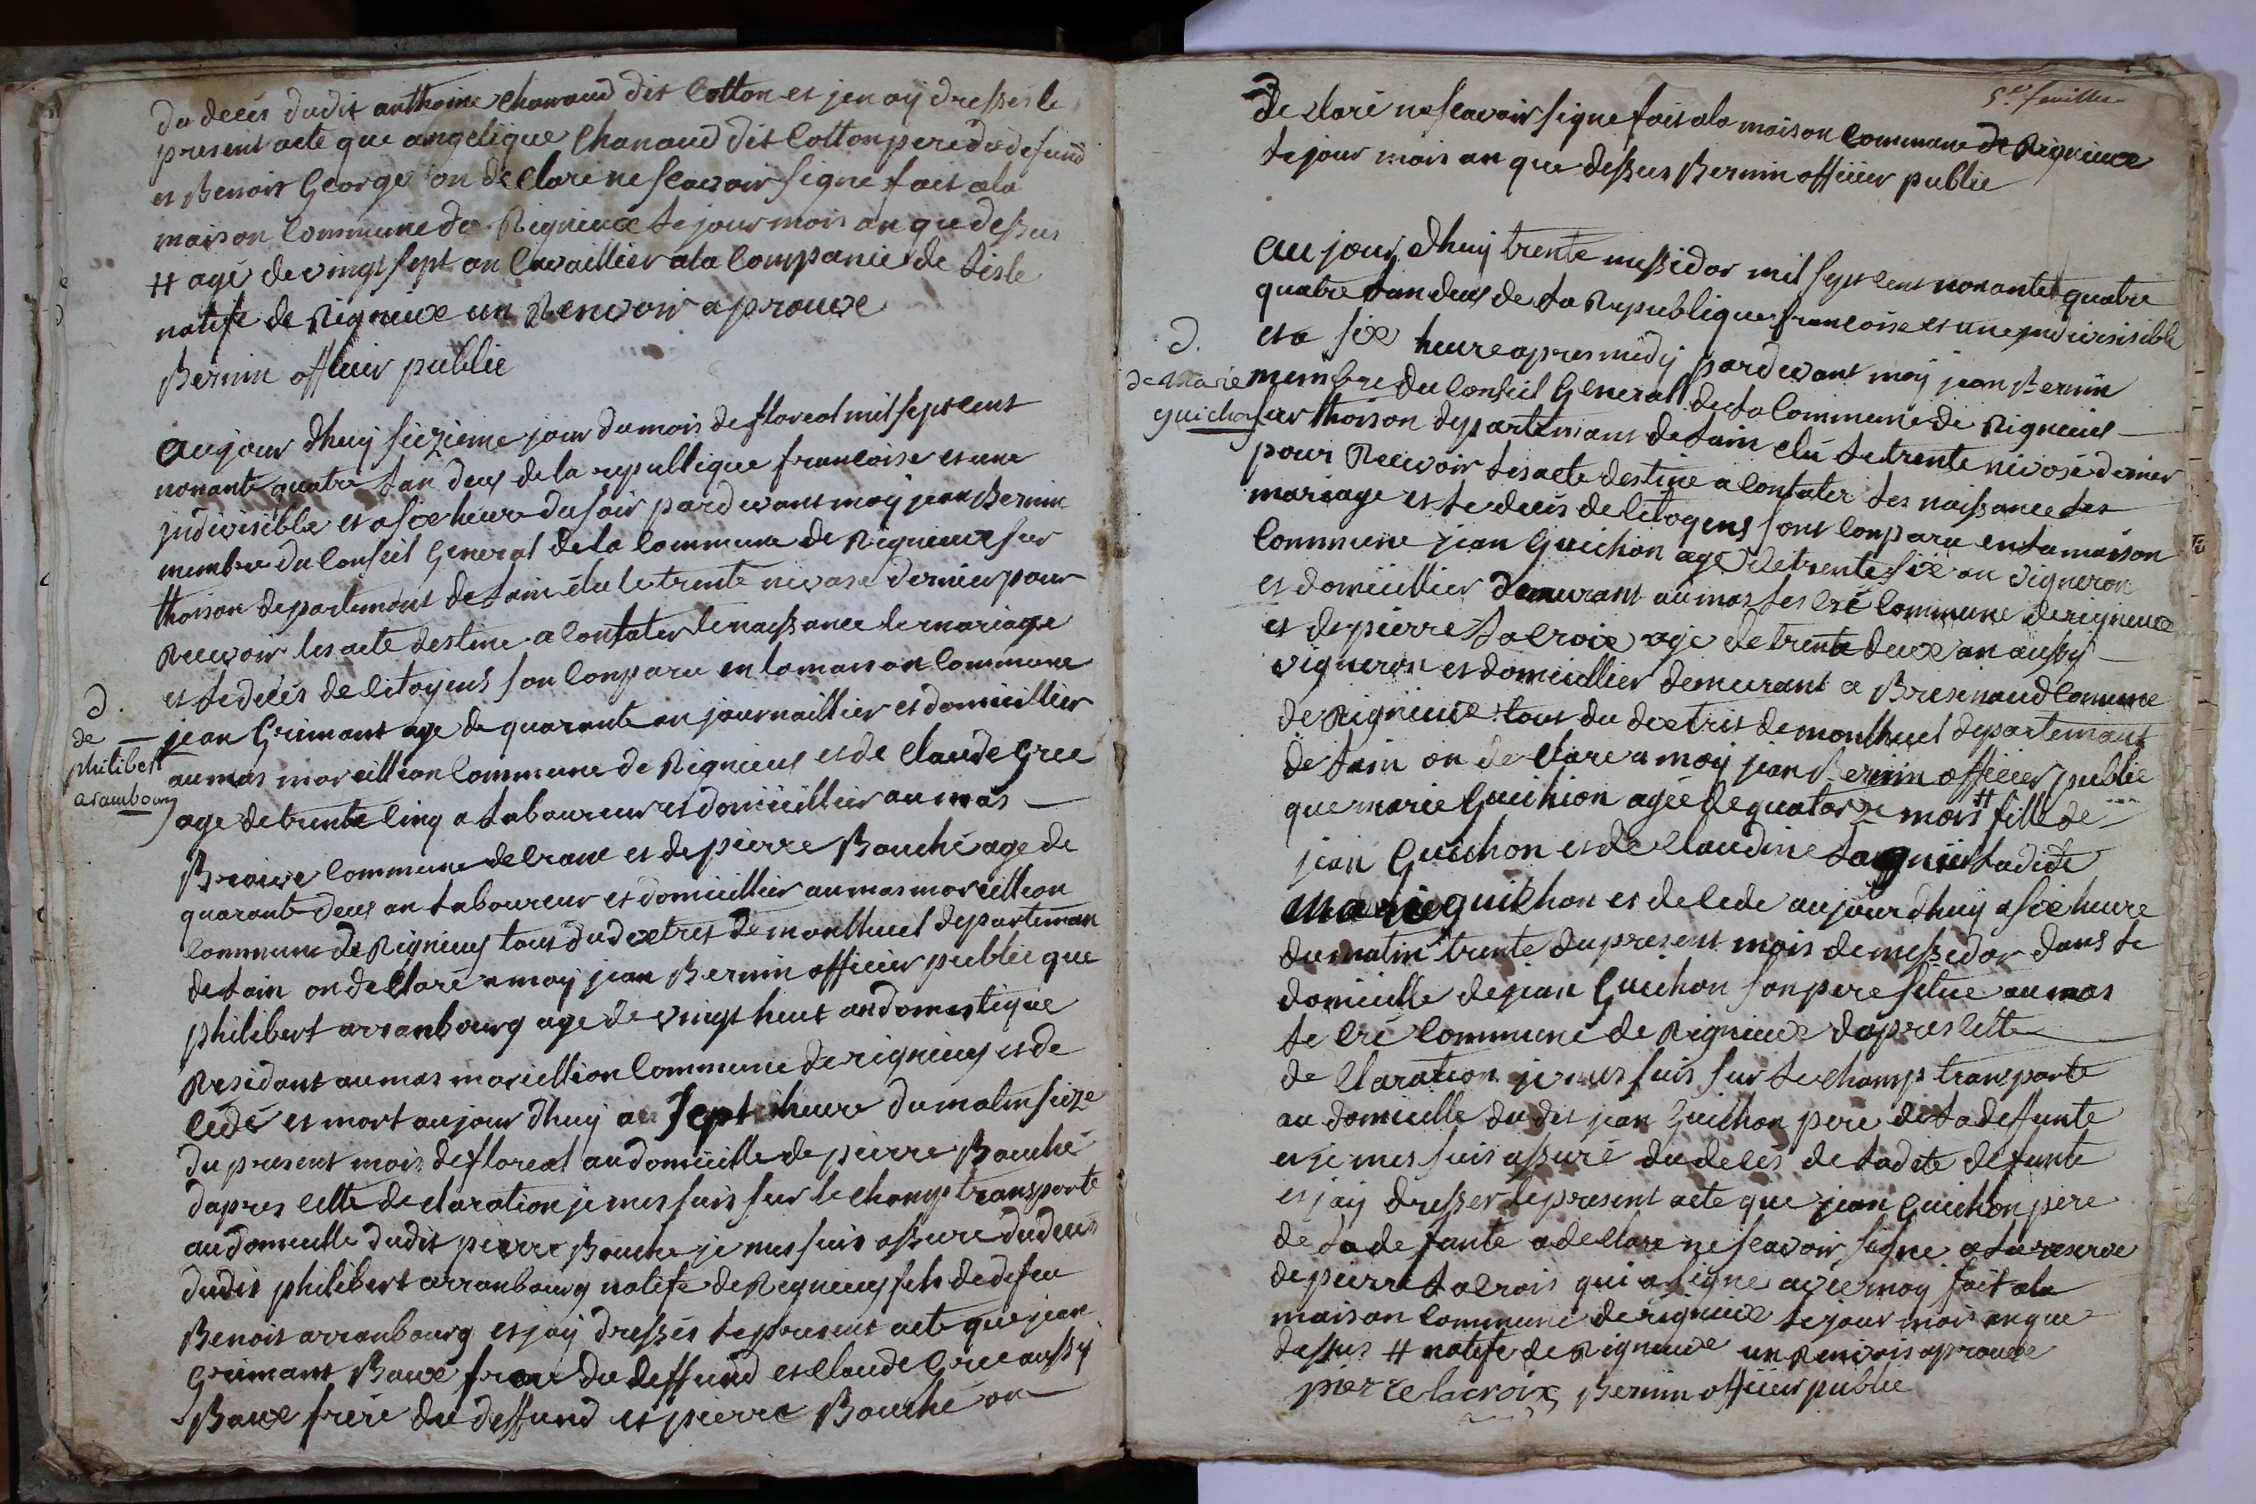 du deces dudit anthoine chanaud dit Cotton et jen aÿ dresser le
present acte que angelique Chanaud dit Cotton pere du defund
et Benois George on declare ne scavoir signe fait ala
maison Commune de Rignieux le jour mois an que dessus
# age de vingt sept an Cavaillier ala Companie de Lisle
natife de Rignieux un Renvoir a prouve
Bernin officier public
aujour dhuy siezieme jour du mois de floreal mil sept cent
nonante quatre Lan deus de la republique francoise et une
jndivisible et a sixe heure du soir pardevant moÿ jean Bernin
membre du Conseil General de la Commune de Rignieux sur
thoison departemant de Lain élu le trente nivose dernier pour
Recevoir les acte destine a Contater le naissance le mariage
et le deces de Citoyens son Conparu en la maison Commune
D.
de
philibert
arambourg
jean Grimant age de quarante an journaillier et domicillier
au mas mareillion Commune de Rignieus et de Claude Gree
age de trente Cinq a Laboureur et domicillier au mas
Braive Commune de Crane et de pierre Bouché age de
quarante deus an Laboureur et domicillier au mas mareillion
Commune de Rignieus tous du dixtrit de montluel departeman
de Lain on declaré a moÿ jean Bernin officier public que
philibert arranbourg age de vingt huit an domestique
Residant au mas mareillion Commune de rignieus et de
Cedé et mort aujour dhuy a sept heure du matin sieze
du present mois de floreal au domicille de pierre Bouché
dapres Cette declaration je mes suis sur le champ transporte
au domicille dudit pierre Bouche je mes suis assure du deces
dudit philibert arranbourg natife de Rignieus fils de defeu
Benois arranbourg et jaÿ dressés le present acte que jean
Grimant Baux frere du deffund et Claude Gree aussÿ
Baux frere du deffund et pierre Bouché on
5e feuillet
de claré ne scavoir signe fait ala maison Commune de Rignieux
le jour mois an que dessus Bernin officier public
au jour dhuy trente messidor mil sept cent nonante quatre
quatre Lan deus de la Republique francoise et une jndivisisible
et a six heure apres midÿ pardevant moÿ jean Bernin
D.
de Marie
guichon
membre du Conseil General de la Commune de Rignieus
sur thoison departemant de Lain elu le trente nivose dernier
pour Recevoir les acte destine a Contater les naissance les
mariage et le deces de Citoyens sont Conparu en la maison
Commune jean Guichon age de trente six an vigneron
et domicillier demurant au mas les Cré Commune de rignieux
et de pierre Lacroix age de trente deux an aussÿ
vigneron et domicillier demurant a Bresenaud Comune
de Rignieux tous du dixtrit de montluel departemant
de Lain on declare a moÿ jean Bernin officier public
que marie Guichon agée de quatorze mois # fille de
jean Guichon et de Claudine Lagnier Ladite
Marie guichon et decede aujourdhuy a six heure
du matin trente du present mois de messidor dans le
domicille de jean Guichon son pere situé au mas
le Cré Commune de Rignieux dapres Cette
declaration je mes suis sur le champ transporte
au domicille du dit jean Guichon pere de la deffunte
et je mes suis assuré du deces de Ladite defunte
et jaÿ dresser le present acte que jean Guichon pere
de la defunte a declare ne scavoir signe a la reserve
de pierre Lacrois qui a signe avec moÿ fait ala
maison Commune de rignieux le jour mois an que
dessus # natife de Rignieux un Renvois aprouve
pierre lacroix Bernin officier public